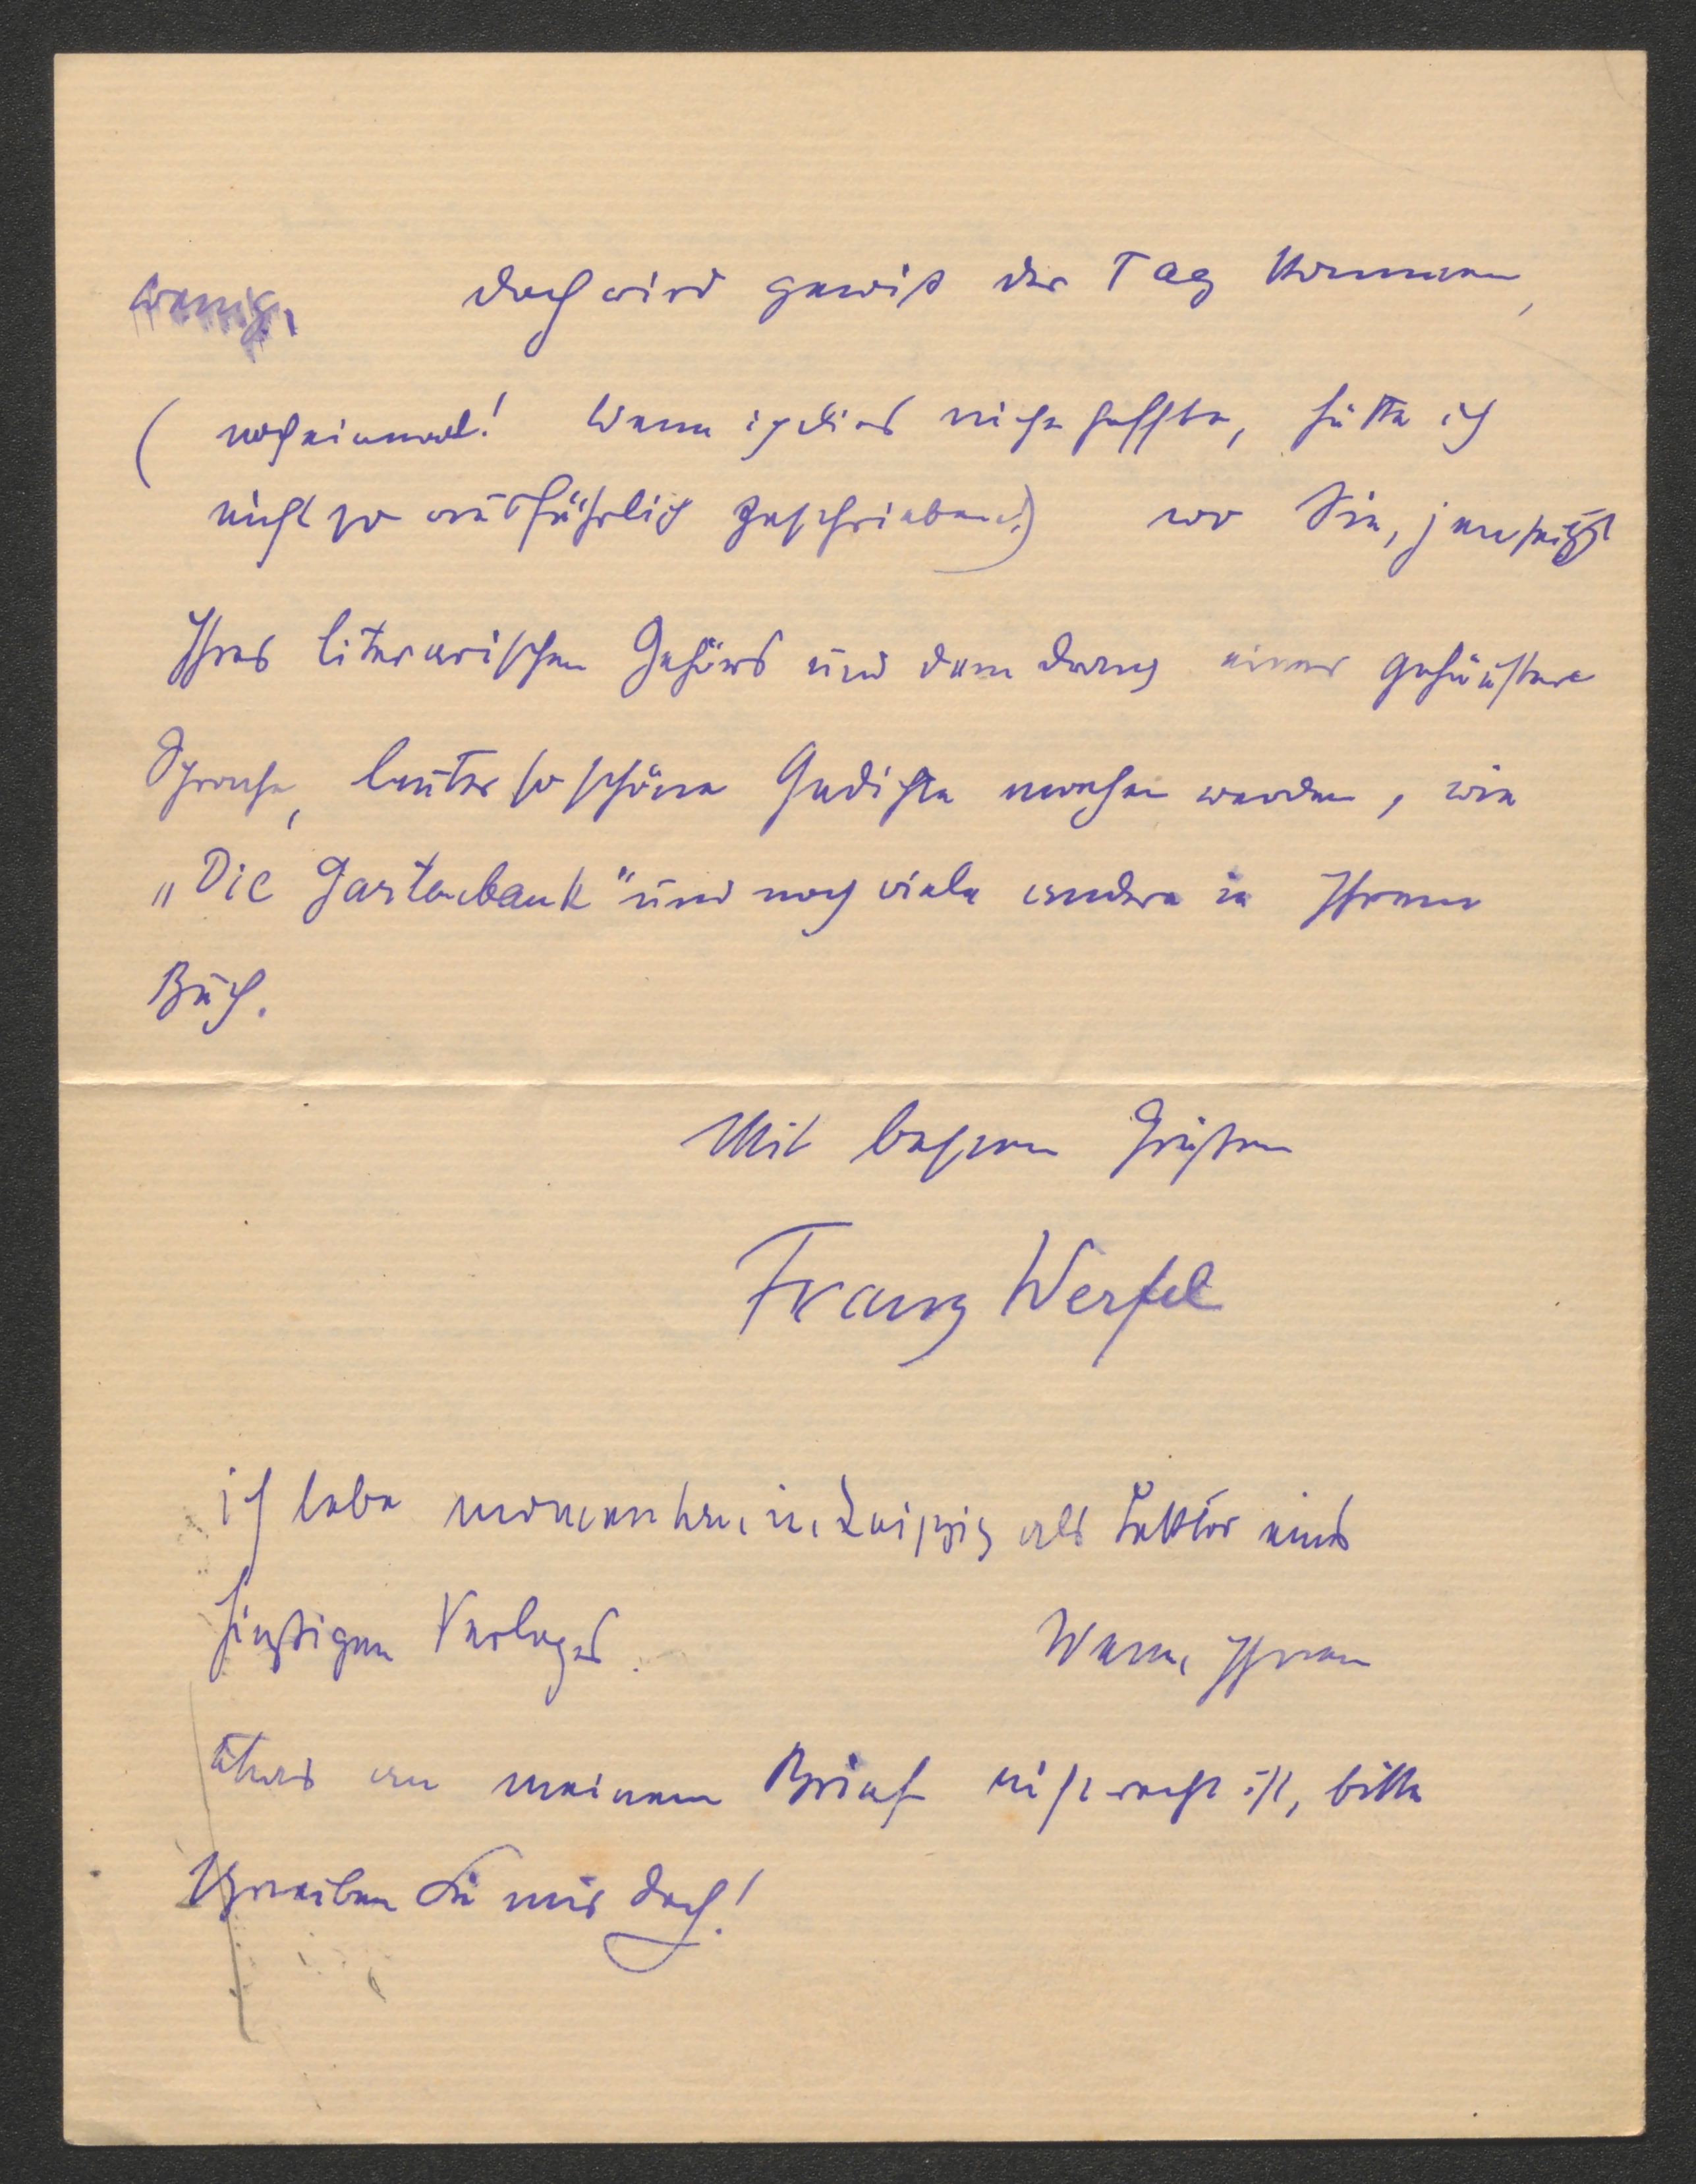 wenig. doch wird gewiß der Tag kommen,
( nocheinmal! Wenn ich dies nicht hoffte, hätte ich
nicht so ausführlich geschrieben.) wo Sie, jenseits
Ihres literarischen Gehörs und dem Drang einer
Sprache, lauter so schöne Gedichte machen werden, wie
„Die Gartenbank“ und noch viele andere in Ihrem
Buch.
Mit besten Grüßen
Franz Werfel
ich lebe momentan in Leipzig als Lektor eines
hiesigen Verlages. Wenn Ihnen
etwas an meinem Brief nicht recht ist, bitte
schreiben Sie mir doch!